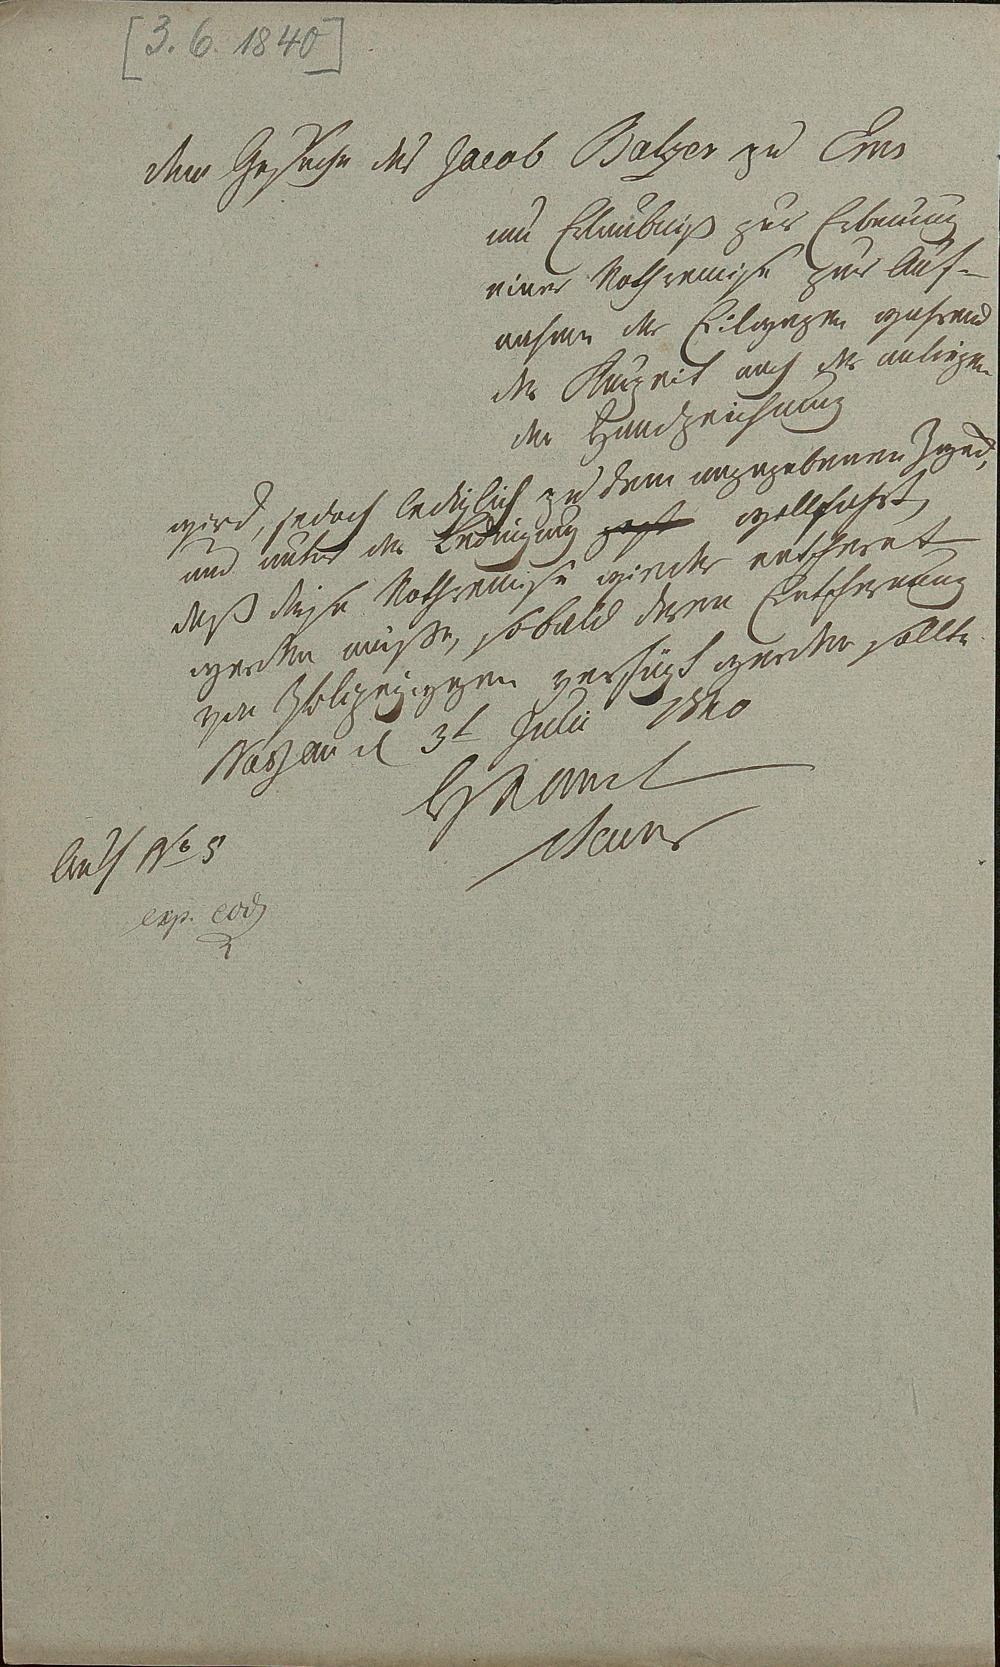 [3. 6. 1840]
Dem Gesuche des Jacob Balzer zu Ems
um Erlaubniß zur Erbauung
einer Nothremise zur Auf-
nahme der Eilwagen während
der Kurzeit nach der anliegen-
den Handzeichnung
wird, jedoch lediglich zu dem angegebenen Zweck,
und unter der Bedingung willfahrt,
daß diese Nothremise wieder entfernt
werden müsse, sobald deren Entfernung
von Polizeiwegen verfügt werden sollte.
Nassau d 3t Juli 1840
Hzl Amt
Auf No 5
exp. eod